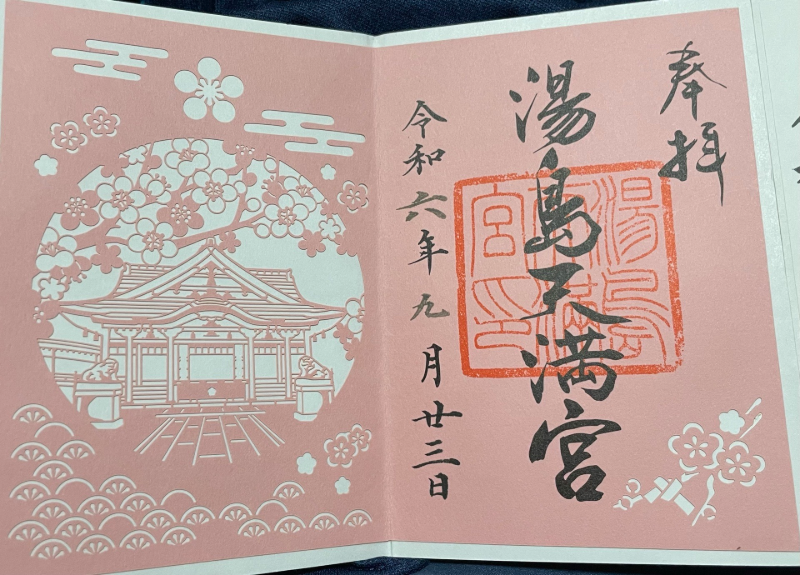 奉拝
湯島天満宮
湯島
天満
宮印
令和六年九月廿三日